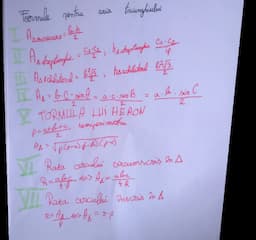 Formule pentru aria triunghiului
I A oarecare = b·h/2
II A dreptunghic = C1·C2/2, h dreptunghic = C1·C2/ip
III A echilateral = l²√3/4, h echilateral = l√3/2
IV AΔ = b·c·sin A/2 = a·c·sin B/2 = a·b·sin C/2
V FORMULA LUI HERON
p = a+b+c/2 semiperimetru
AΔ = √p(p-a)(p-b)(p-c)
VI Raza cercului circumscris în Δ
R = abc/4A ⇔ AΔ = abc/4R
VII Raza cercului înscris în Δ
r = A/p ⇔ AΔ = r·p